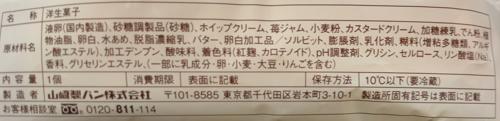 名称 洋生菓子
原材料名 液卵(国内製造)、砂糖調製品(砂糖)、ホイップクリーム、苺ジャム、小麦粉、カスタードクリーム、加糖練乳、でん粉、植
物油脂、卵白、水あめ、脱脂濃縮乳、バター、卵白加工品／ソルビット、膨脹剤、乳化剤、糊料(増粘多糖類、アルギ
ン酸エステル)、加工デンプン、酸味料、着色料(紅麹、カロテノイド)、pH調整剤、グリシン、セルロース、リン酸塩(Na)、
香料、グリセリンエステル、(一部に乳成分・卵・小麦・大豆・りんごを含む)
内容量 1個 消費期限 表面に記載 保存方法 10℃以下(要冷蔵)
製造者 山崎製パン株式会社 〒101-8585 東京都千代田区岩本町3-10-1 製造所固有記号は表面に記載
お客様相談室 0120-811-114